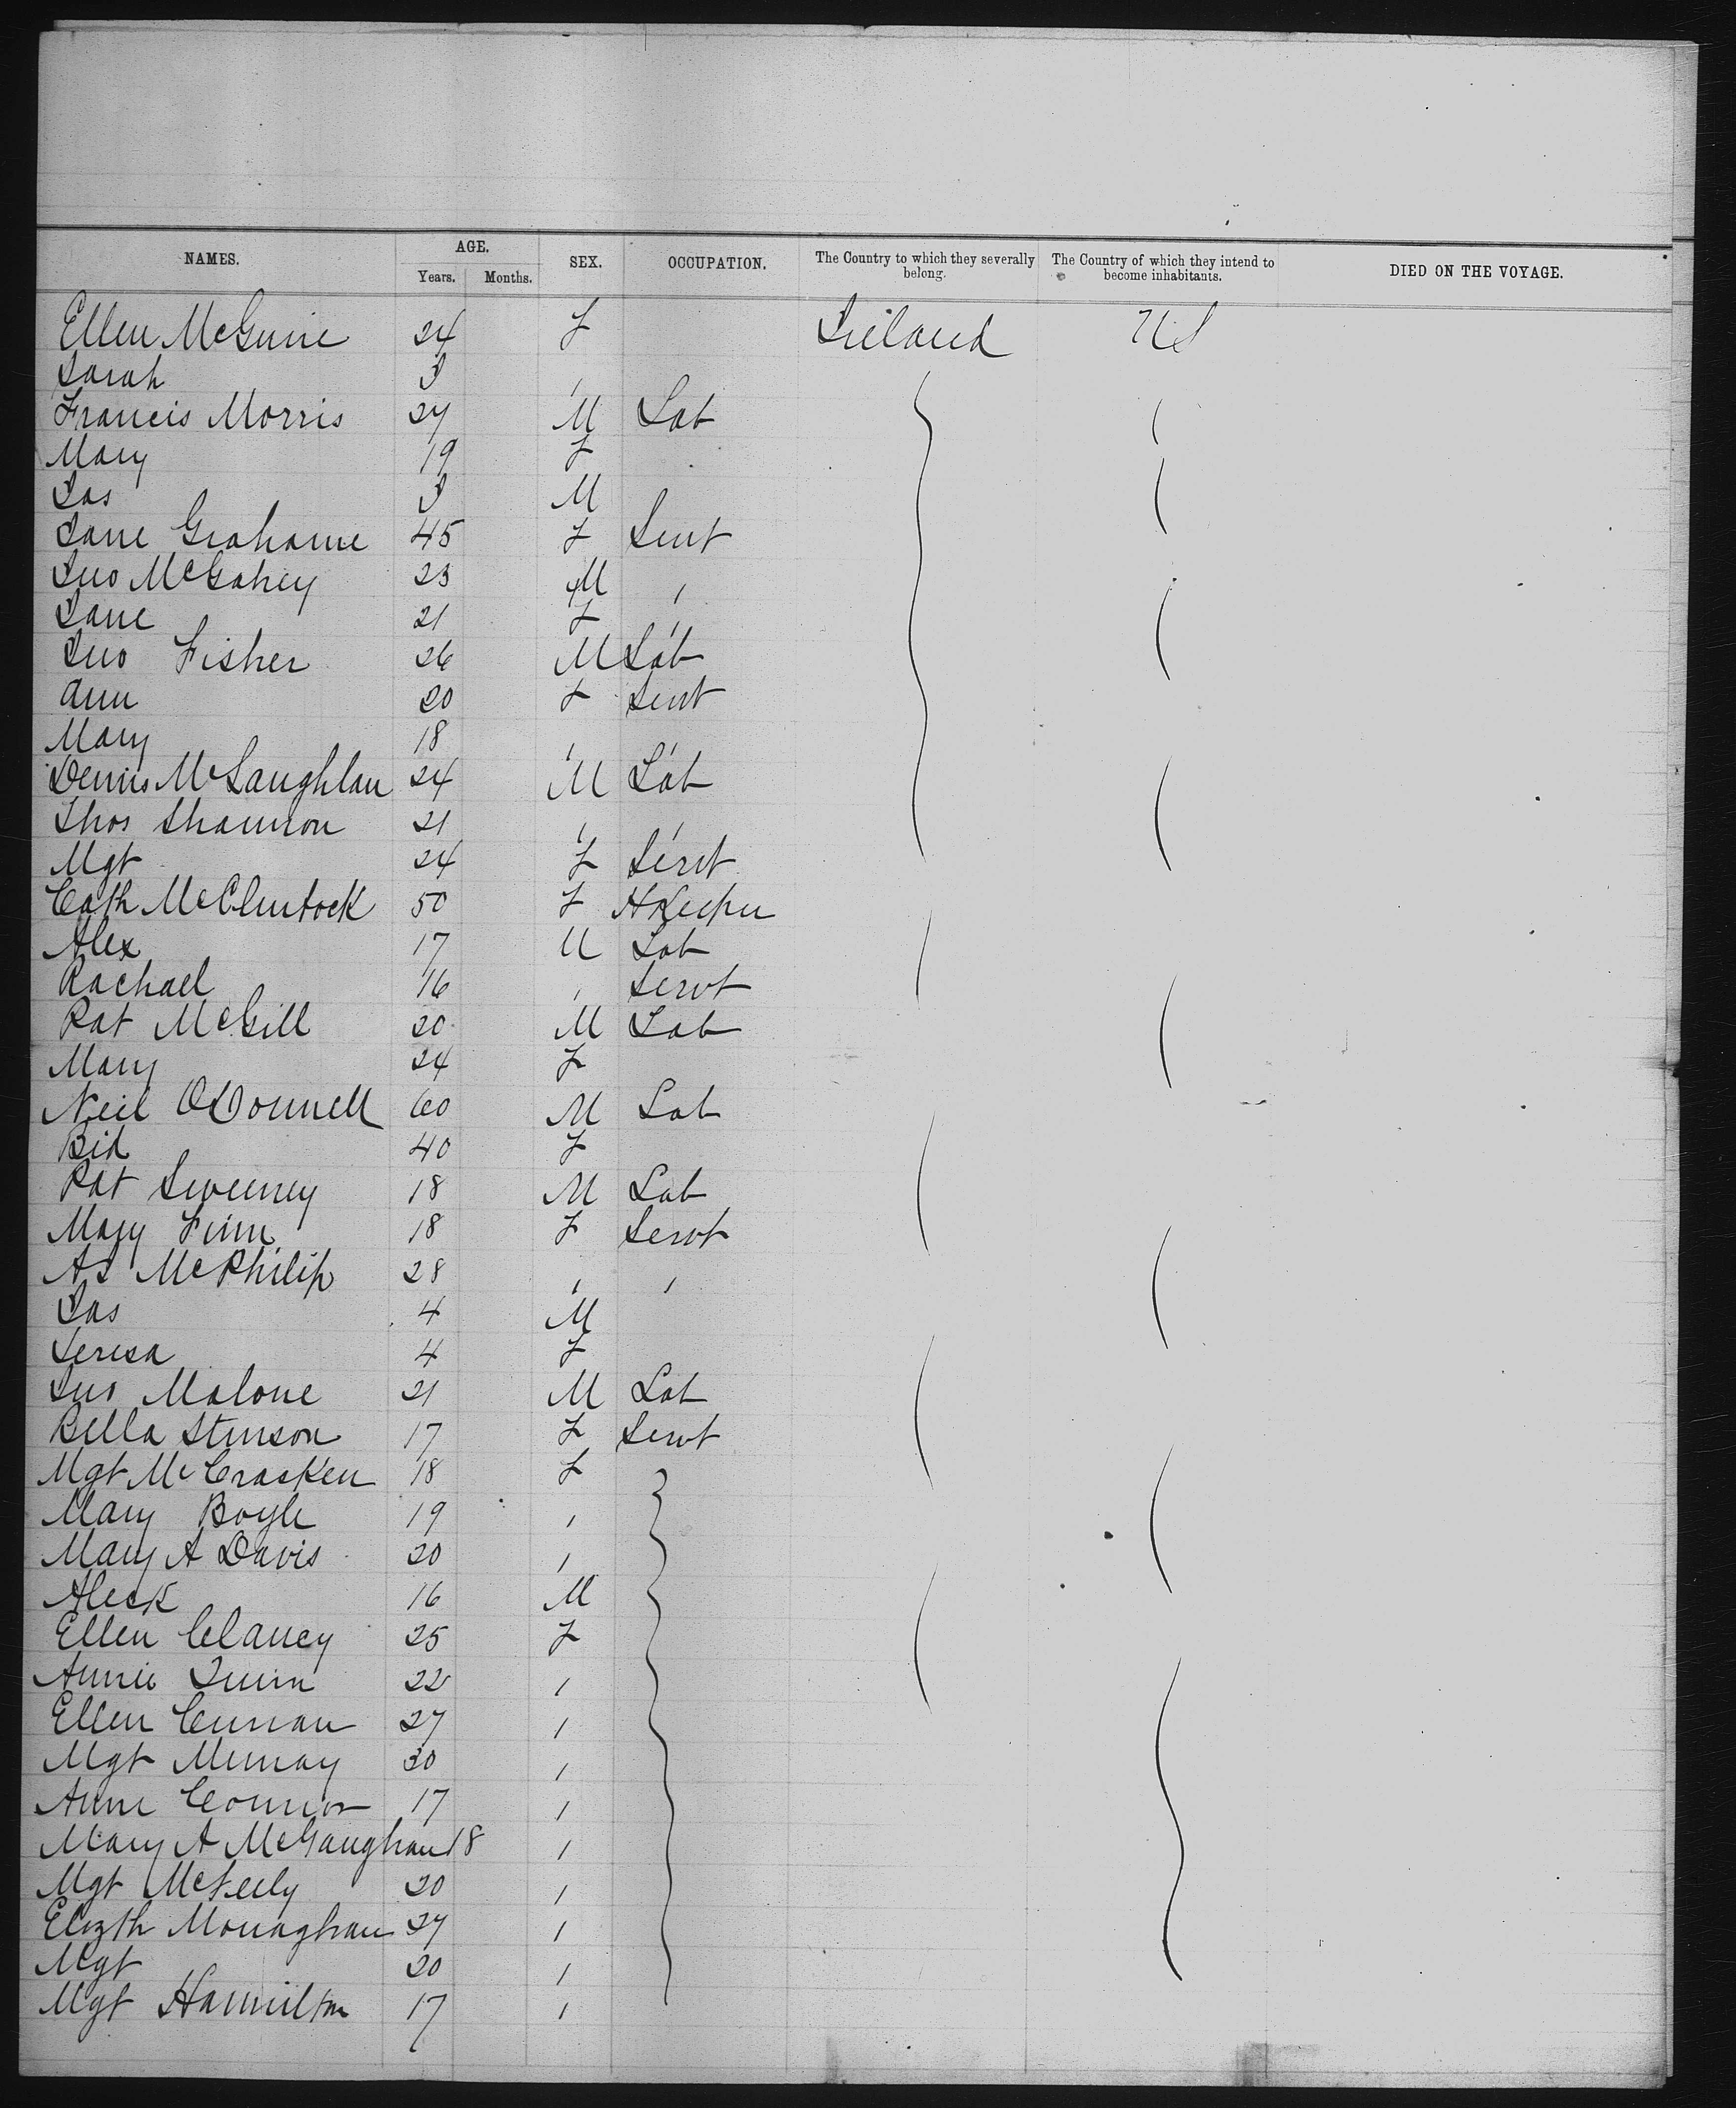 NAMES. AGE. SEX. OCCUPATION. The Country to which they severally belong. The Country of which they intend to become inhabitants. DIED ON THE VOYAGE.
Years. Months.
Ellen McGuire 24 F Ireland US
Sarah 3 "
Francis Morris 27 M Lab
Mary 19 F
Jas 3 M
Jane Grahame 45 F Servt
Jno McGahey 23 M "
Jane 21 F "
Jno Fisher 26 M Lab
Ann 20 F Servt
Mary 18 " "
Denis McLaughlan 24 M Lab
Thos Shannon 21 " "
Mgt 24 F Servt
Cath McClintock 50 F HKeeper
Alex 17 M Lab
Rachael 16 " Servt
Pat McGill 20 M Lab
Mary 24 F
Neil ODonnell 60 M Lab
Bid 40 F
Pat Sweeney 18 M Lab
Mary Finn 18 F Servt
As McPhilip 28 " "
Jas 4 M
Teresa 4 F
Jno Malone 21 M Lab
Bella Stinson 17 F Servt
Mgt McCracken 18 F
Mary Boyle 19 "
Mary A Davis 20 "
Aleck 16 M
Ellen Clancy 25 F
Annie Quinn 22 "
Ellen Curran 27 "
Mgt Murray 30 "
Anne Connor 17 "
Mary A McGaughan 18 "
Mgt McFeely 20 "
Elizth Monaghan 27 "
Mgt 20 "
Mgt Hamilton 17 "